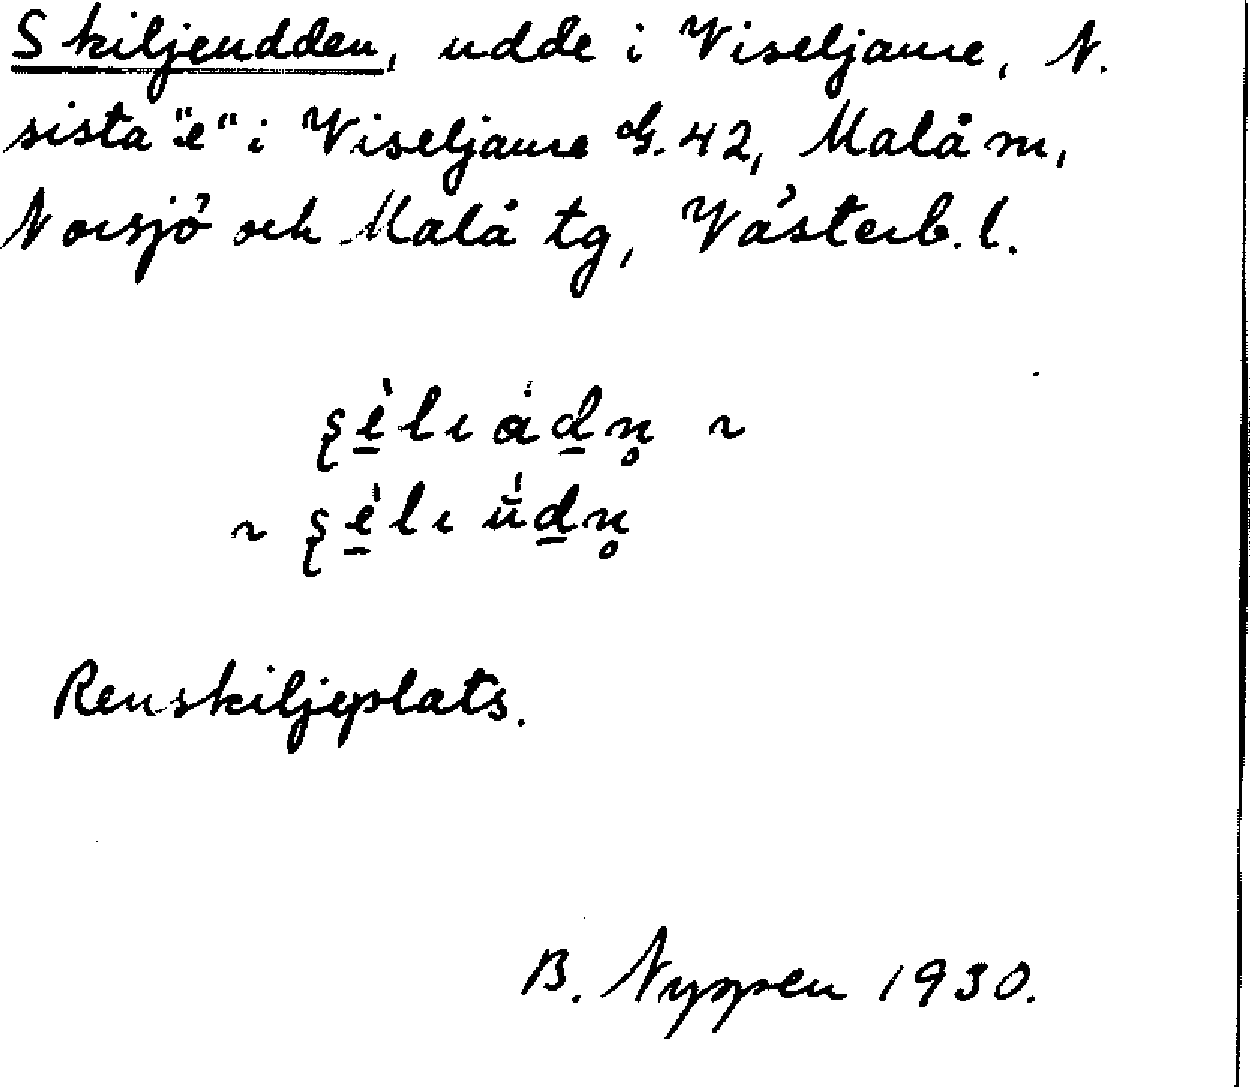 Skiljeudden, udde i Viseljaure, N.
sista "e" i Viseljaure G. 42, Malå m,
Norsjö och Malå tg, Västerb. l.
~
~
Renskiljeplats.
B. Nyppen 1930.